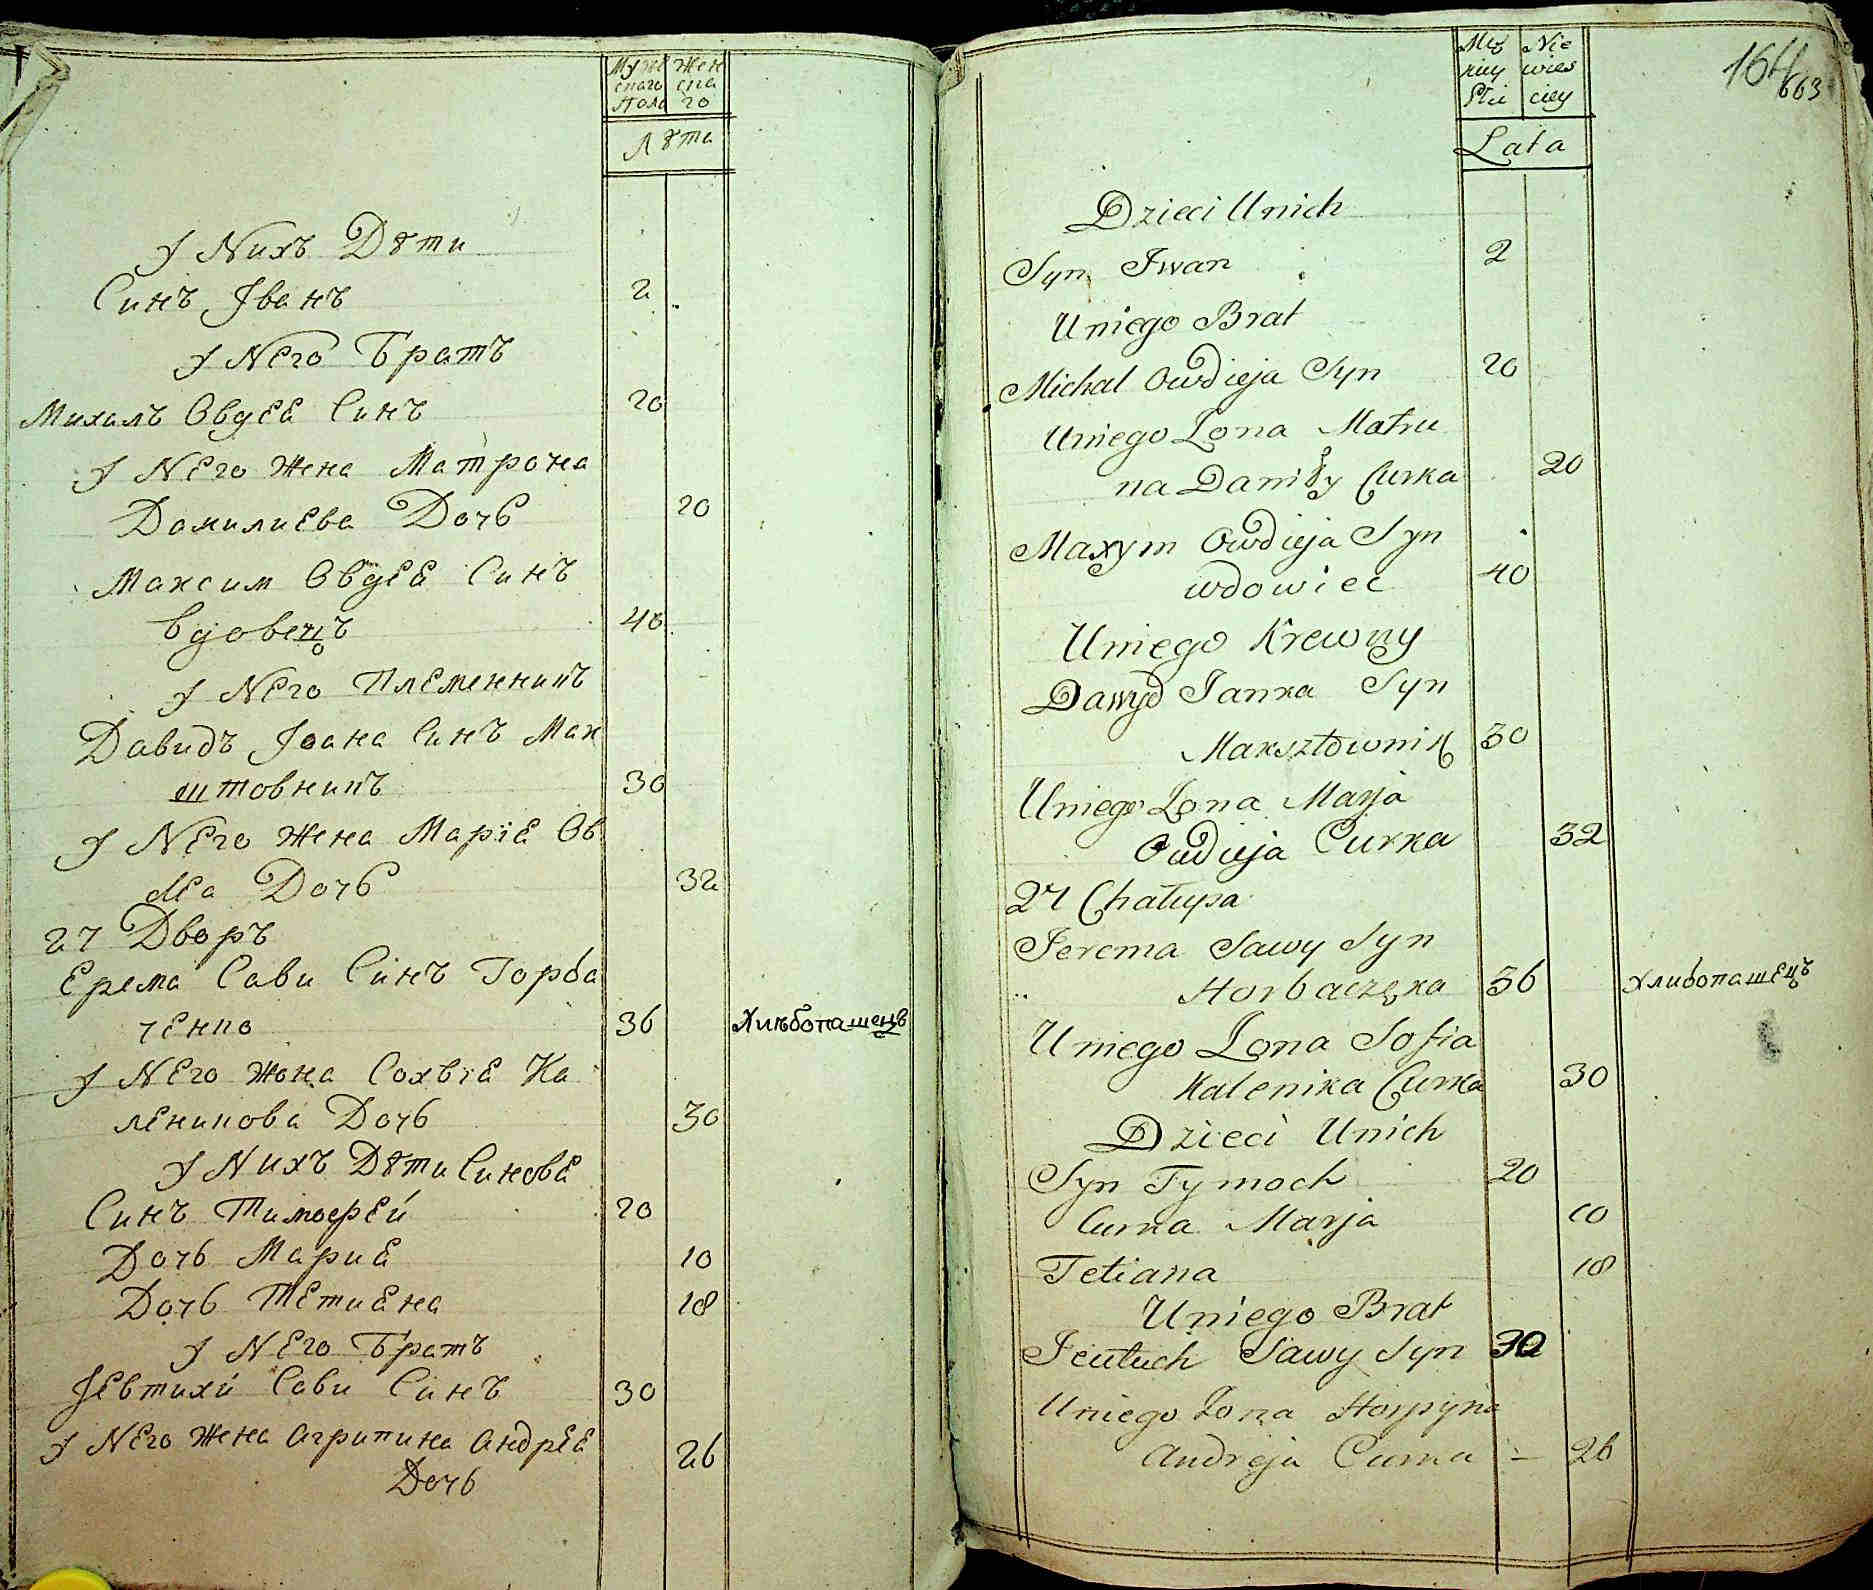 Мужескаго Пола
Женскаго
Лѣта
У Нихъ Дѣти
Синъ Іванъ 2
У Него Братъ
Михалъ Овдея Синъ 20
У Него Жена Матрона
Данилиева Дочь 20
Максим Овдея Синъ
вдовецъ 40
У Него Племенникъ
Давидъ Іоана Синъ Мак
штовникъ 30
У Него Жена Маріа Ов
дея Дочь 32
27 Дворъ
Ерема Сави Синъ Горба
ченко 36 Хлѣбопашецъ
У Него Жона Сохвія Ка
леникова Дочь 30
У Нихъ Дѣти Синове
Синъ Тимофей 20
Дочь Мария 10
Дочь Тетиана 18
У Него Братъ
Іевтихи Сави Синъ 30
У Него Жена Агрипина Андрея 26
Дочь
164
663
Męz Nie
kiey wies
Płci ciey
Lata
Dzieci Unich
Syn Iwan 2
Uniego Brat
Michal Owdieja Syn 20
Uniego Zona Matru
na Daniły Curka 20
Maxym Owdieja Syn
wdowiec 40
Uniego Krewny
Dawyd Janka Syn
Muksztownik 30
Uniego Zona Marja
Owdieja Curka 32
27 Chałupa
Jerema Sawy Syn
Horbaczęka 36 Хлибопашецъ
Uniego Zona Sofia
Kalenika Curka 30
Dzieci Unich
Syn Tymoch 20
Curka Marja 10
Tetiana 18
Uniego Brat
Jeutuch Sawy Syn 30
Uniego Zona Horpyna
Andreja Curka - 26